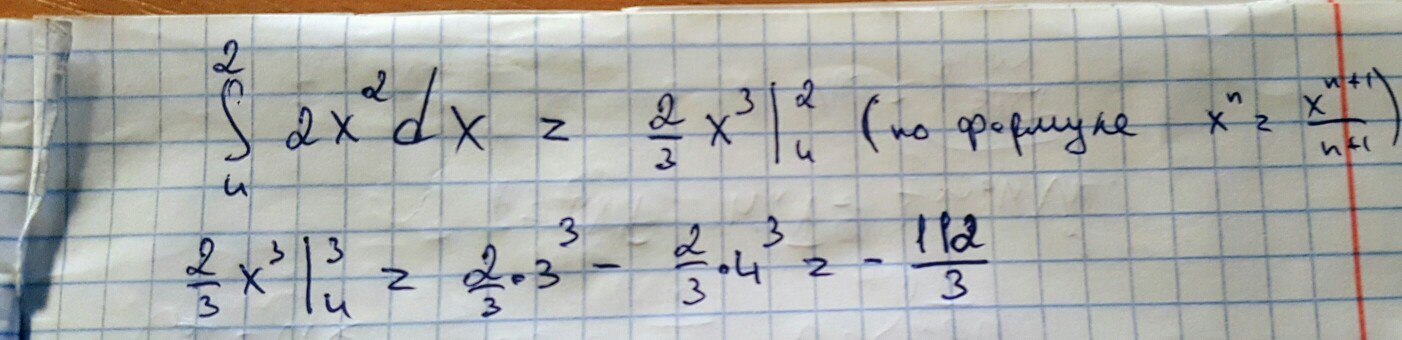 ∫₄² 2x² dx = 2/3 x³ |₄² (по формуле xⁿ = xⁿ⁺¹/n+1)
2/3 x³ |₄³ = 2/3 · 3³ − 2/3 · 4³ = − 112/3